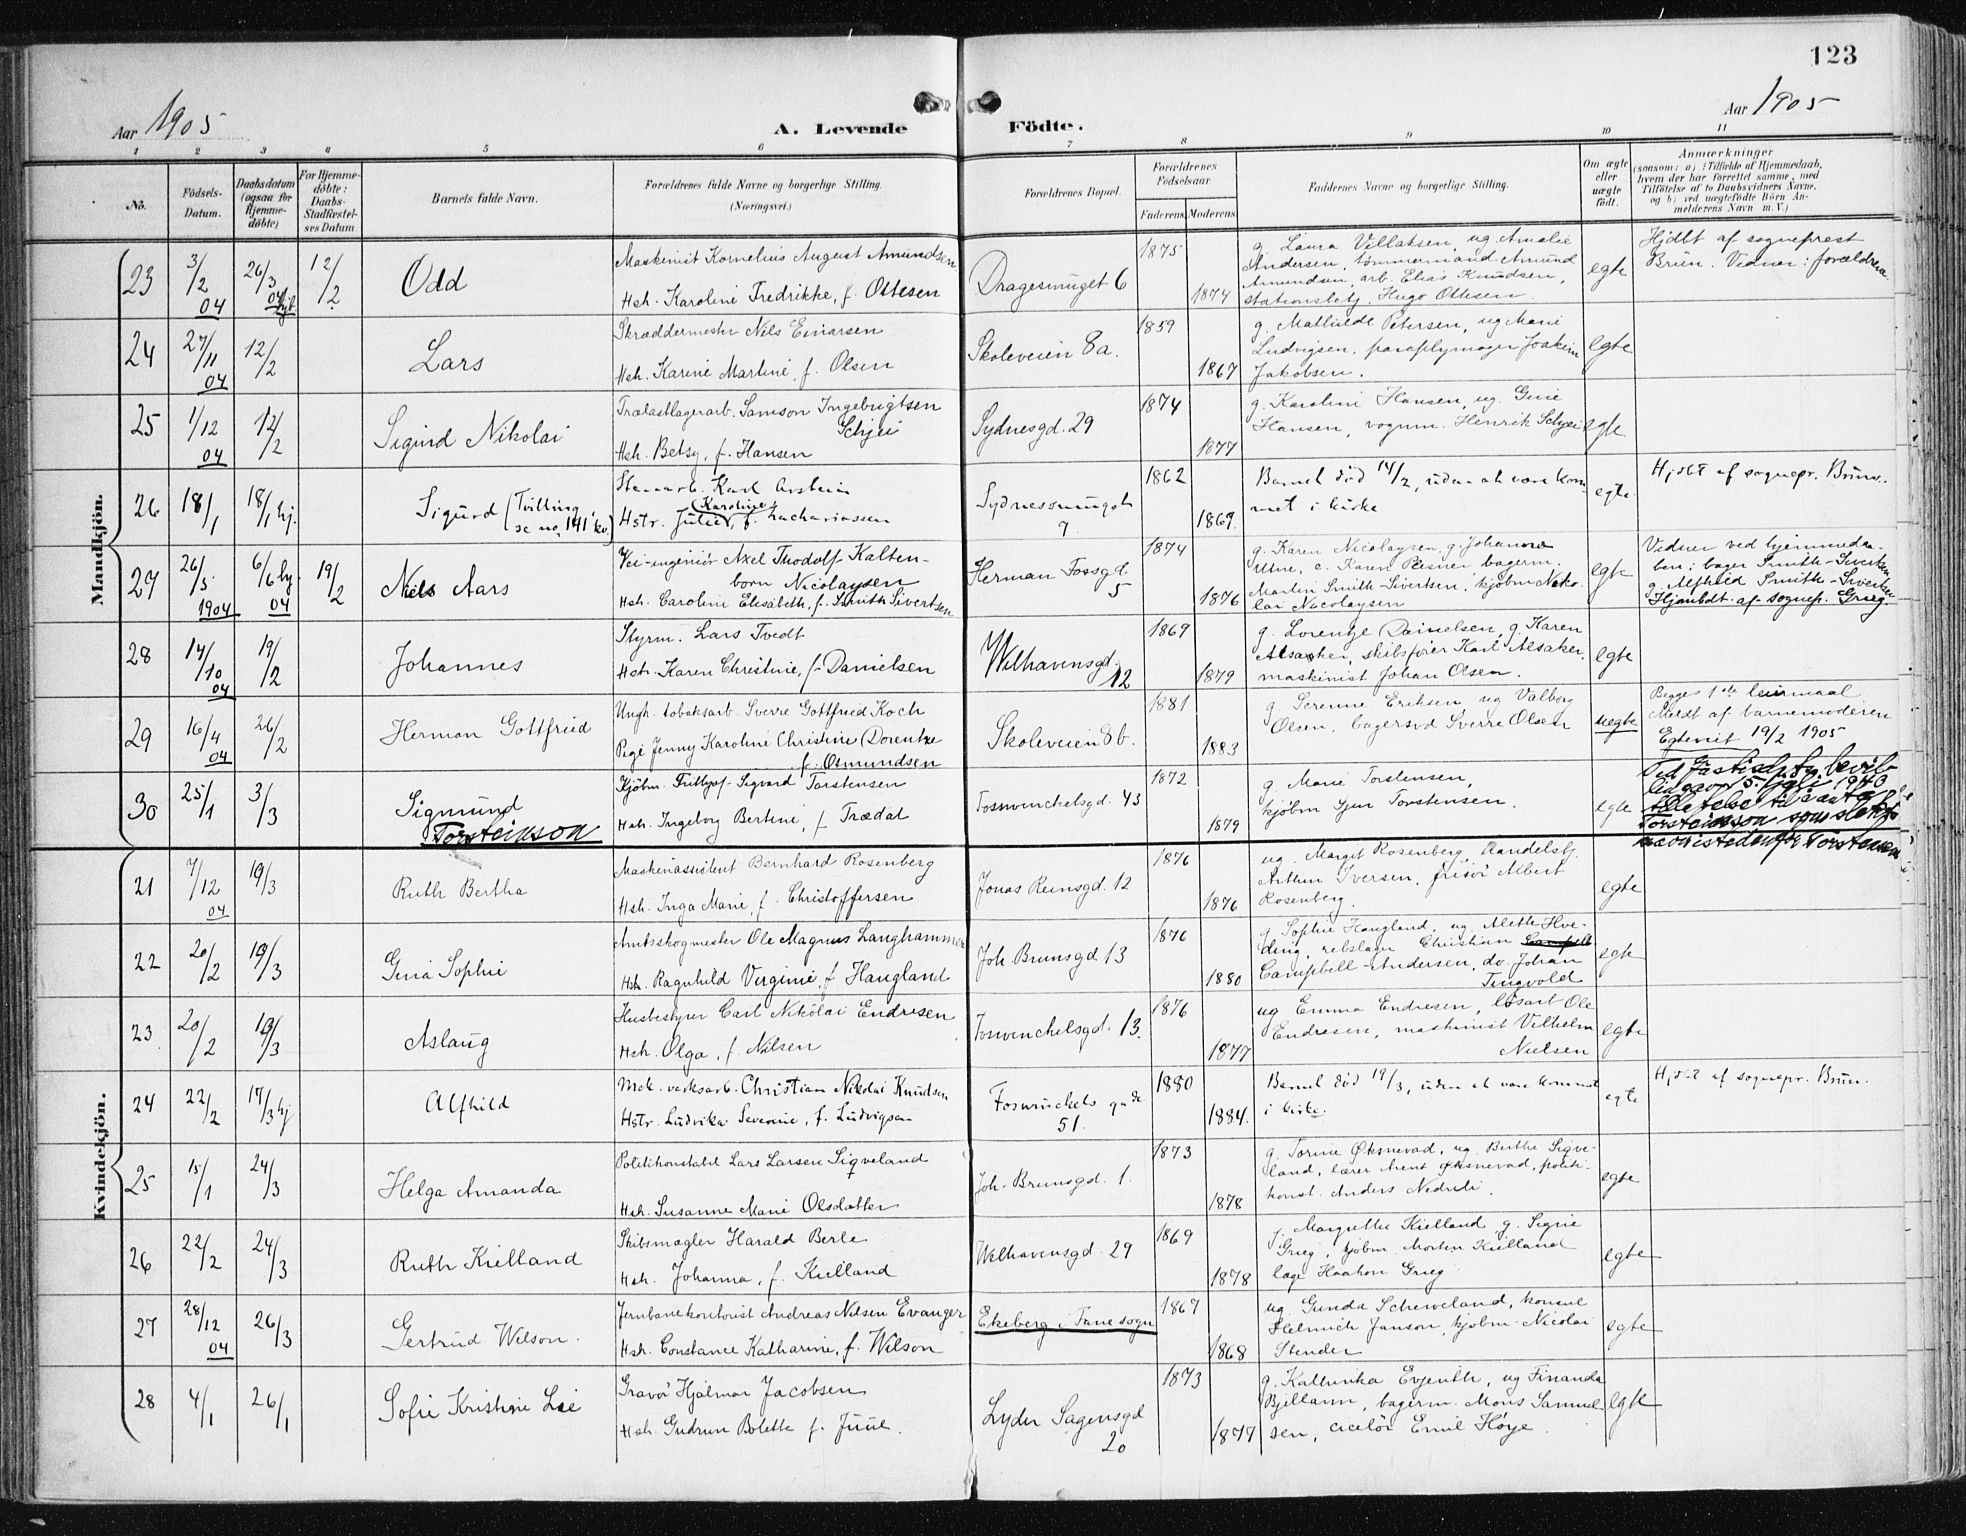 123
Aar 1905
A. Levende Födte.
Aar 1905
1 2 3 4 5 6 7 8 9 10 11
No.
Födsels-Datum.
Daabsdatum (ogsaa for Hjemmedöbte)
For Hjemmedöbte: Daabs-Stadfæstelses Datum
Barnets fulde Navn.
Forældrenes fulde Navne og borgerlige Stilling.
(Næringsvei.)
Forældrenes Bopæl.
Forældrenes Fødselsaar.
Faderens Moderens
Faddernes Navne og borgerlige Stilling.
Om ægte eller uægte födt.
Anmærkninger
(saasom: a) i Tilfælde af Hjemmedaab,
hvem der har forrettet samme, med
Tilföielse af to Daabsvidners Navne,
og b) ved uægtefödte Börn An-
melderens Navn m. V.)
Mandkjön.
23 3/2 04 26/3 04 hj. 12/2 Odd
Maskinist Kornelius August Amundsen
Hsh. Karoline Fredrikke, f. Ottesen
Dragesmuget 6 1875 1874
g. Laura Villaksen, ug. Amalie
Andersen, tømmermand Amund
Amundsen, arb. Elias Knudsen,
stationsbetj. Hugo Ottesen.
egte
Hjdbt af sogneprest
Brun. Vidner: forældrene
24 27/11 04 12/2 Lars
Skræddermester Nils Einarsen
Hsh. Karine Martine, f. Olsen
Skoleveien 8a. 1859 1867
g. Mathilde Petersen, ug Marie
Ludvigsen, paraplymager Joakim
Jakobsen.
egte
25 1/12 04 12/2 Sigurd Nikolai
Trælastlagerarb. Samson Ingebrigtsen
Schjei
Hsh. Betsy, f. Hansen
Sydnesgd. 29 1874 1877
g. Karoline Hansen, ug. Gine
Hansen, vognm. Henrik Schjei
egte
26 18/1 18/1 hj. Sigurd (Tvilling se no. 141 kv.)
Karl
Hstr. Julie Karoline, f. Zachariassen
Sydnessmuget
7. 1862 1869.
Barnet död 14/2, uden at være kom-
met i kirke
egte
Hjdbt af sognepr. Brun.
27 26/5 1904 6/6 hj. 04 19/2 Niels Aars
Vei-ingeniör Axel Thodolf Kalten-
born Nicolaysen
Hsh. Caroline Elisabeth, f. Smith Sivertsen
Herman Fossgd.
5 1874 1876
g. Karen Nicolaysen, g. Johanne
Utne, e. Karen Plesner, bagerm.
Martin Smith-Sivertsen, kjøbm Niko-
lai Nicolaysen
egte
Vidner ved hjemmedaa-
ben: bager Smith-Sivertsen
g. Alfhild Smith-Sivertsen
Hjembdt. af sognep. Grieg.
28 14/10 04 19/2 Johannes
Styrm. Lars Tvedt
Hsh. Karen Christine, f. Danielsen
Welhavensgd.
12 1869 1879
g. Lorentze Danielsen, g. Karen
Alsaker, skibsfører Karl Alsaker,
maskinist Johan Olsen.
egte
29 16/4 04 26/2 Herman Gottfried
Ungk. tobaksarb. Sverre Gottfried Koch
Pige Jenny Karoline Christine Dorentze
f. Osmundsen
Skoleveien 8b. 1881 1883
g. Serenne Eriksen, ug Valborg
Olsen, bagersvd Sverre Olsen
uegte
Begges 1ste leiermaal
Meldt af barnemoderen
Egteviet 19/2 1905
30 25/1 3/3 Sigmund
Torsteinson
Kjöbm. Frithjof Sigurd Torstensen
Hsh. Ingeborg Bertine, f. Trædal
Fosswinckelsgd. 43 1872 1879
g. Marie Torstensen,
kjöbm Torstensen.
egte
Ved Justisdep.s bevil-
ling av 5. juli 1943
tillatelse til å anta
Torsteinson som slekts-
navn istedenfor Torstensen
Kvindekjön.
21 7/12 04 19/3 Ruth Bertha
Maskinassistent Bernhard Rosenberg
Hsh. Inga Marie, f. Christoffersen
Jonas Reinsgd. 12 1876 1876
ug. Margit Rosenberg, Handelsbj.
Arthur Iversen, frisør Albert
Rosenberg.
egte
22 20/2 19/3 Gina Sophie
Amtsskogmester Ole Magnus Langhammer
Hsh. Ragnhild Virginie, f. Haugland
Joh. Brunsgd 13 1876 1880
g Sophie Haugland, ug. Alethe Hve-
ding, rebslager Christian
Campbell-Andersen, do. Johan
Tingvold
egte
23 20/2 19/3 Aslaug
Husbestyrer Carl Nikolai Endresen
Hsh. Olga, f. Nilsen
Fosswinckelsgd. 13. 1876 1877
ug Emma Endresen, løsarb Ole
Endresen, maskinist Vilhelm
Nielsen
egte
24 22/2 17/3 hj Alfhild
Mek. verksarb. Christian Nikolai Knudsen
Hstr. Ludvika Severine, f. Ludvigsen
Foswinckels gade
51. 1880 1884.
Barnet död 19/3, uden at være kommet
i kirke.
egte
Hjdbt af sognepr. Brun.
25 15/1 24/3 Helga Amanda
Politikonstabel Lars Larsen Siqveland
Hsh. Susanne Marie Olsdatter
Joh. Brunsgd. 1. 1873 1878
g. Torine Øksnevad, ug. Berthe Sigve-
land, lærer Arent Øksnevad, politi-
konst. Anders
egte
26 22/2 24/3 Ruth Kielland
Skibsmægler Harald Berle
Hsh. Johanna, f. Kielland
Welhavensgd. 29 1869 1878
f. Margrethe Kielland g. Signe
Grieg, kjöbm. Morten Kielland
læge Haakon Grieg
egte
27 28/12 04 26/3 Gertrud Wilson.
Jernbanekontorist Andreas Nilsen Evanger
Hsh. Constance Katharine, f. Wilson
Ekeberg i Fane sogn 1867 1868
ug. Gunda Scheveland, konsul
Helmich Janson, kjøbm. Nicolai
Stender
egte
28 4/1 26/1 Sofie Kristine Lie
Gravör Hjalmar Jacobsen
Hsh. Gudrun Bolette f. Juul.
Lyder Sagensgd
20 1873 1877
g. Kathinka Evjenth, ug Finanda
Bjelland, bagerm. Mons Samuel-
sen, ciselör Emil Høye.
egte